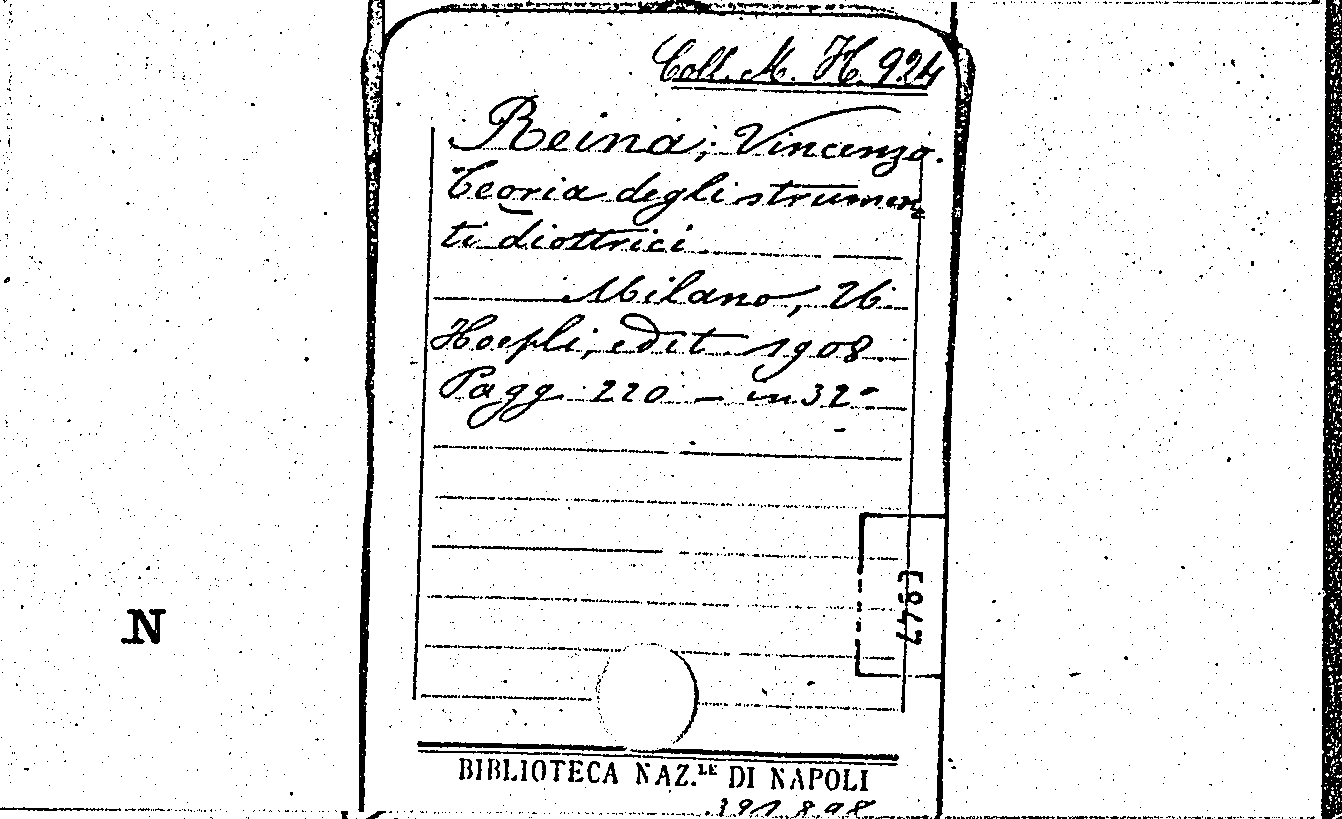 Coll. M. H. 924
Reina, Vincenzo.
Teoria degli strumen
ti diottrici
Milano, U.
Hoepli, edit. 1908
Pagg. 220 — in 32°
N
BIBLIOTECA NAZ.LE DI NAPOLI